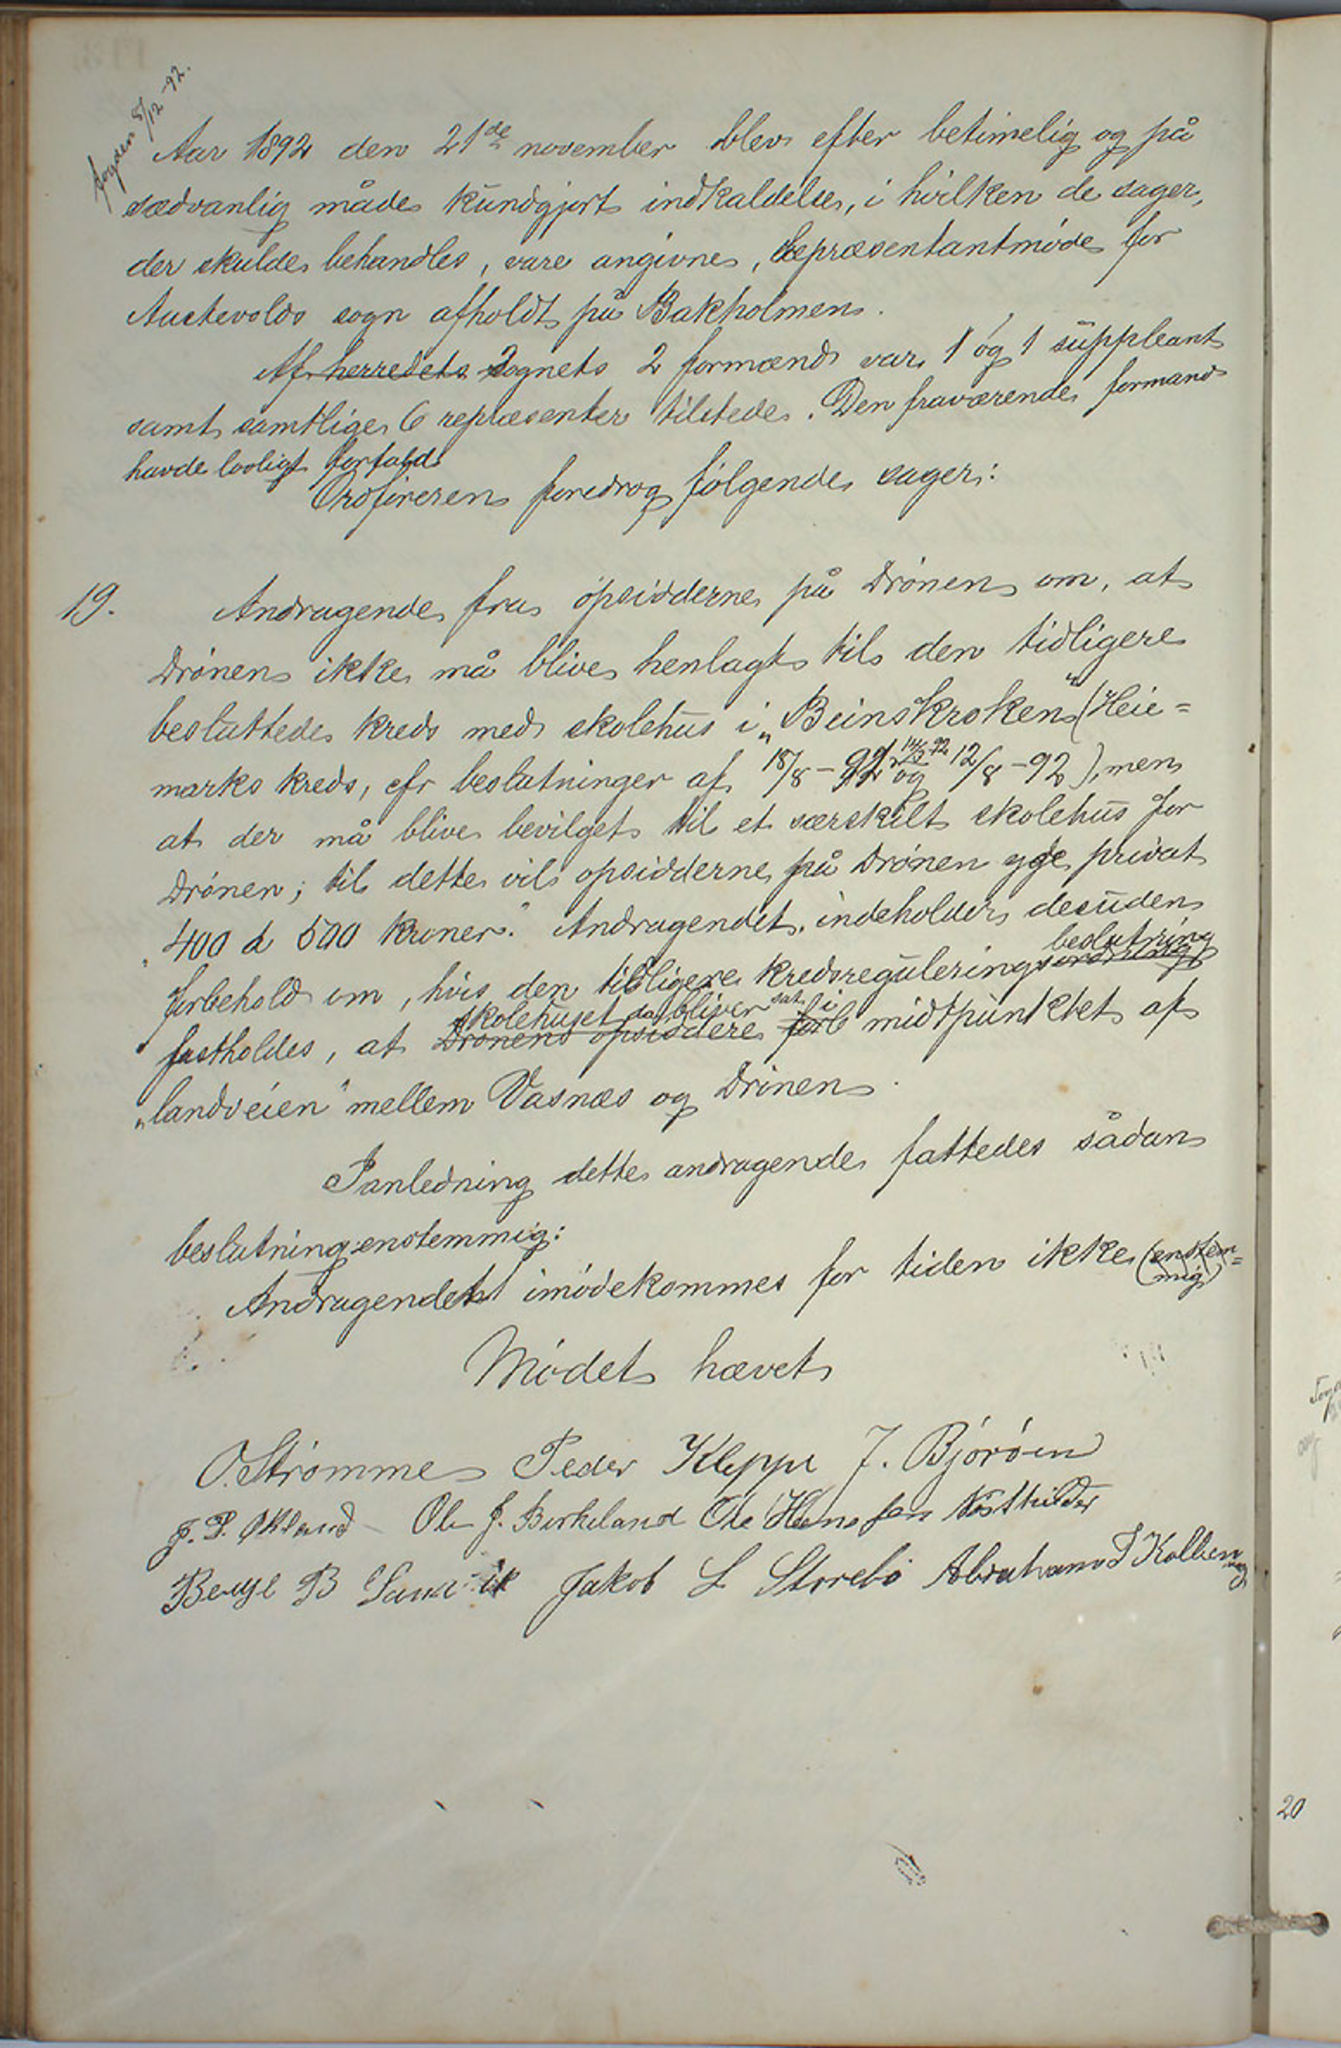 fogden 8/12 -92.
Aar 1892 den 21de november blev efter betimelig og på
sædvanlig måde kundgjort indkaldelse, i hvilken de sager,
der skulde behandles, vare angivne, repræsentantmøde for
Austevolds sogn afholdt på Bakholmen.
Af herredets sognets 2 formænd var 1 og 1 suppleant
samt samtlige 6 repræsenter tilstede. Den fraværende formand
havde lovligt forfald.
Ordføreren foredrog følgende sager:
19. Andragende fra opsidderne på Drönen om, at
Drönen ikke må blive henlagt til den tidligere
besluttede kreds med skolehus i „Beinskroken" (Heie=
marks kreds, cfr beslutninger af 18/8 - 91, 14/3 92 og 12/8 - 92), men
at der må blive bevilget til et særskilt skolehus for
Drönen; til dette vil opsidderne på Drönen yde privat
„400 à 500 kroner." Andragendet indeholder desuden
beslutning
forbehold om, hvis den tidligere kredsreguleringsordning
skolehuset da bliver sat i
fastholdes, at Drönens opsiddere for midtpunktet af
„landveien" mellem Vasnæs og Drönen.
I anledning dette andragende fattedes sådan
beslutning enstemmig:
Andragendet imødekommes for tiden ikke (enstem=
mig)
Mödet hævet
O. Strømme Peder Kleppe J. Björöen
J. P. Økland Ole J. Birkeland Ole Hansen
Bengt B Sandvik Jakob L Storebö Abraham I Kolbensvag
20